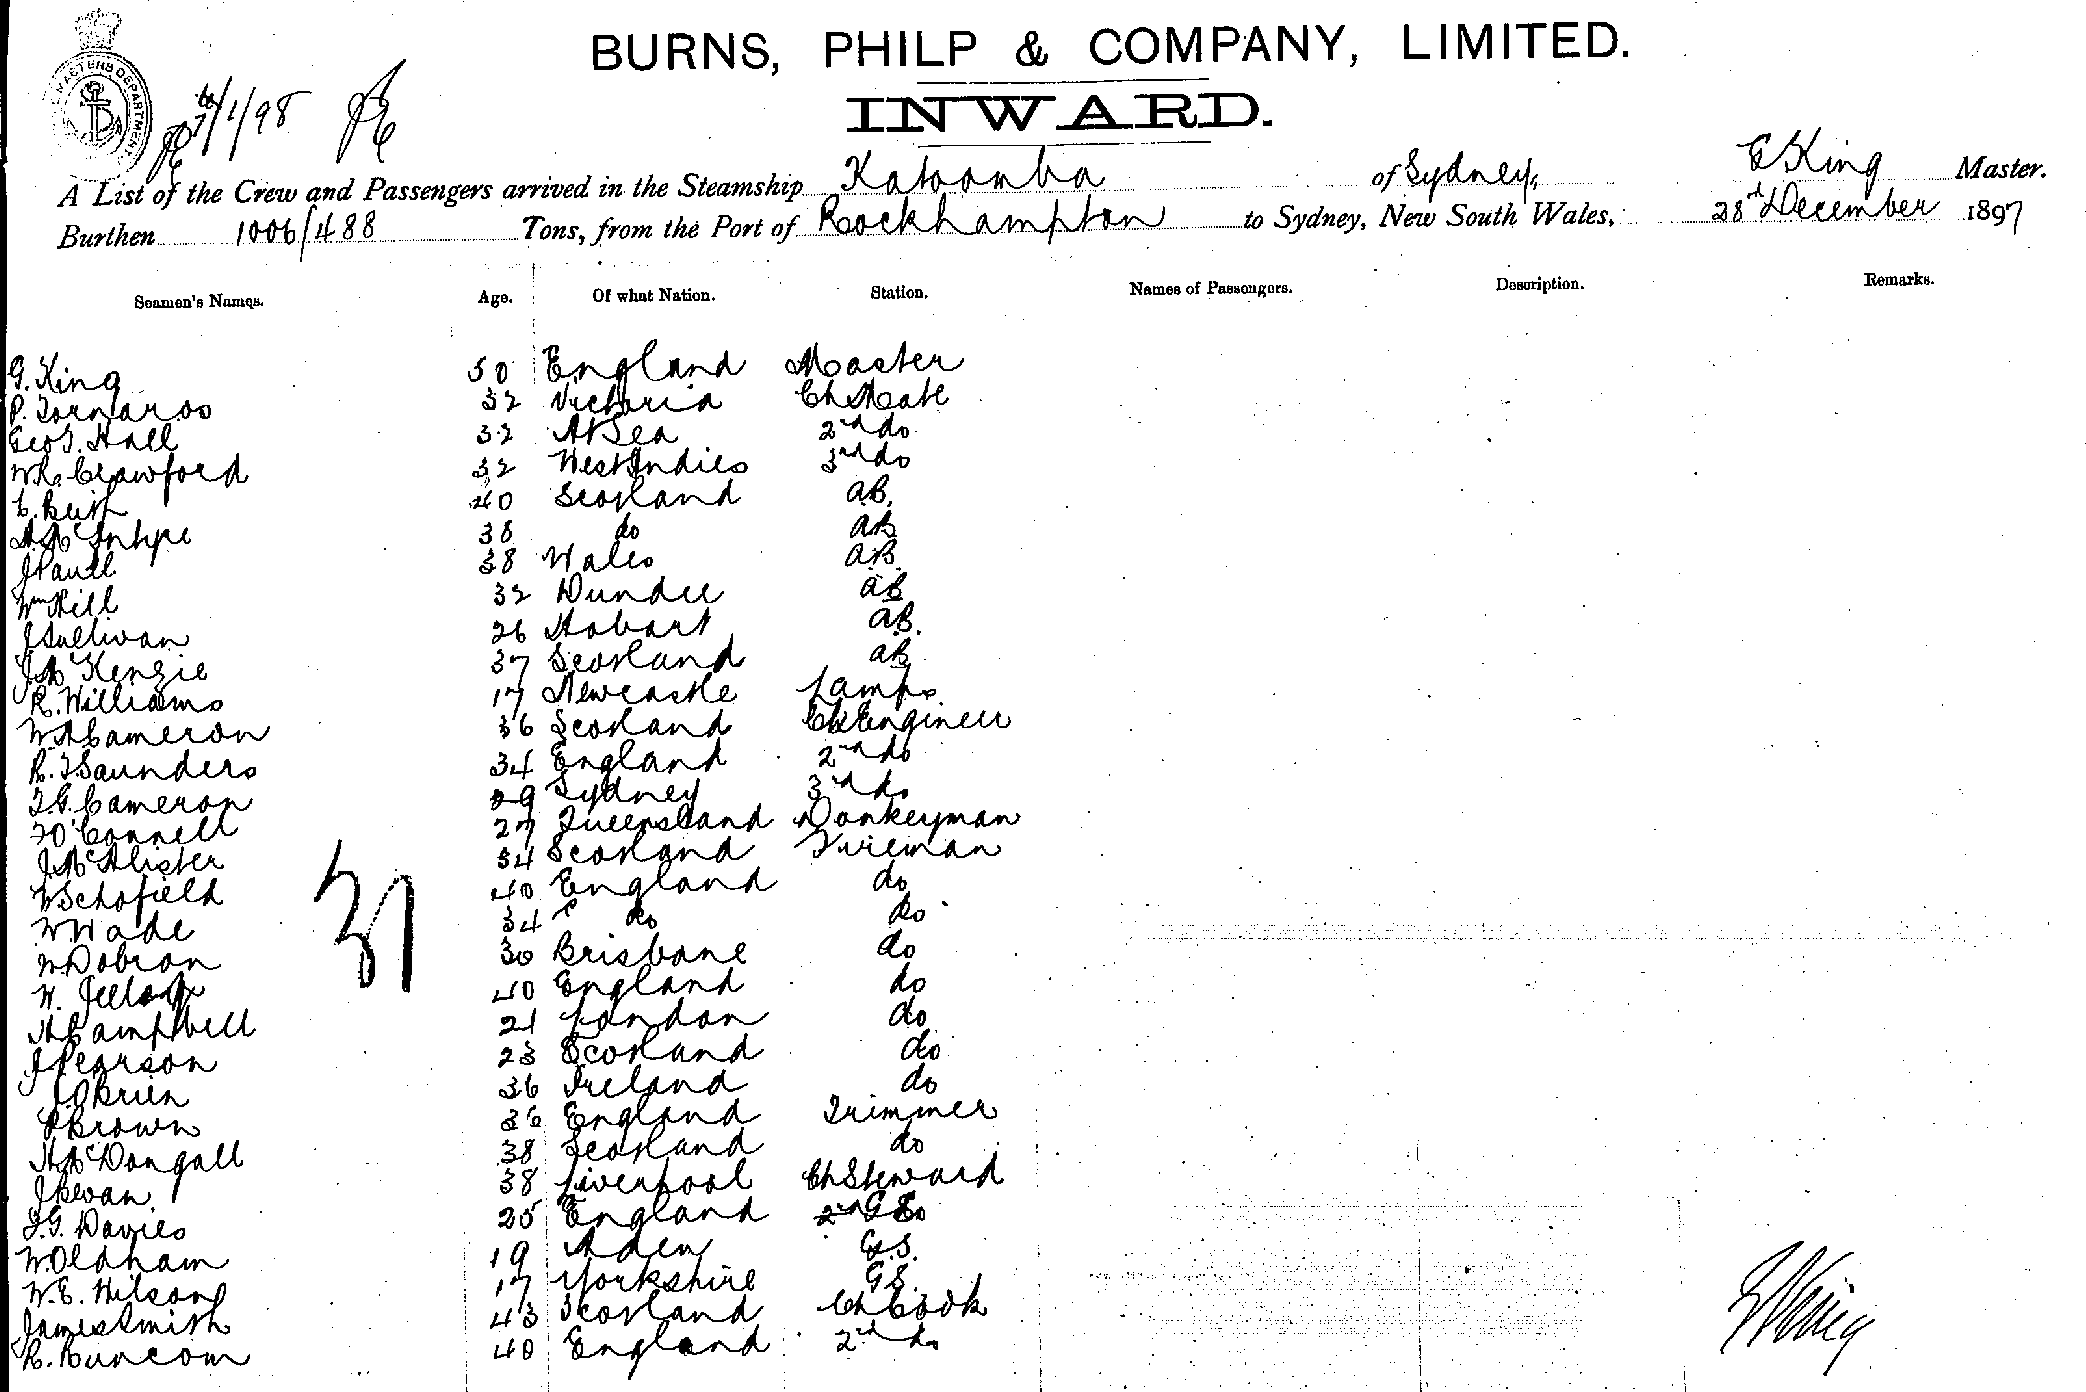 BURNS, PHILP & COMPANY, LIMITED.
INWARD.
/1/98
A List of the Crew and Passengers arrived in the Steamship Katoomba of Sydney, G King Master.
Burthen 1006/488 Tons, from the Port of Rockhampton to Sydney, New South Wales, 28th December 1897
Seamen's Names. Age. Of what Nation. Station. Names of Passengers. Description. Remarks.
G. King 50 England Master
P. Tornaros 32 Victoria Ch Mate
Geo T. Hall 32 At Sea 2nd do
Crawford 32 West Indies 3rd do
40 Scotland AB.
A McIntype 38 do AB
J Paull 38 Wales AB.
Wm Hill 32 Dundee AB
J Sullivan 26 Hobart AB.
J Mc Kenzie 37 Scotland AB
R. Williams 17 Newcastle Lamps
W A Cameron 36 Scotland Ch Engineer
R. T Saunders 34 England 2nd do
T. G. Cameron 29 Sydney 3rd do
T O'Connell 27 Queensland Donkeyman
J McAlister 34 Scotland Fireman
W Schofield 40 England do
W Wade 34 do do
W Dobson 30 Brisbane do
W. 40 England do
A Campbell 21 London do
J Pearson 23 Scotland do
J. O'Brien 36 Ireland do
P Brown 36 England Trimmer
A McDougall 38 Scotland do
J Bevan 38 Liverpool Ch Steward
T. G. Davies 25 England 2nd
W. Oldham 19 Aden G.S.
W. E. Wilson 17 Yorkshire G.S.
James Smith 43 Scotland Ch Cook
R. Runcom 40 England 2nd do
31
G King